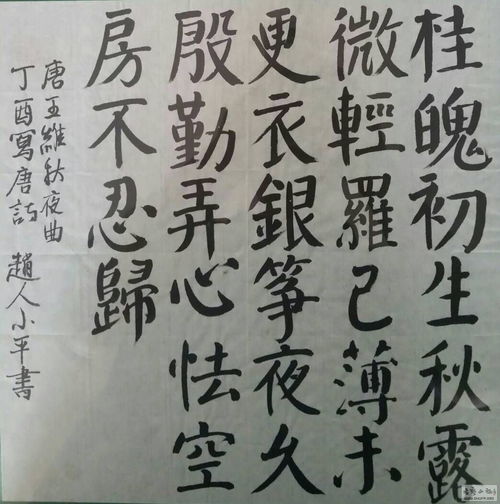 桂魄初生秋露
微輕羅已薄未
更衣銀筝夜久
殷勤弄心怯空
房不忍歸
唐王維秋夜曲
丁酉寫唐詩 趙人小平書